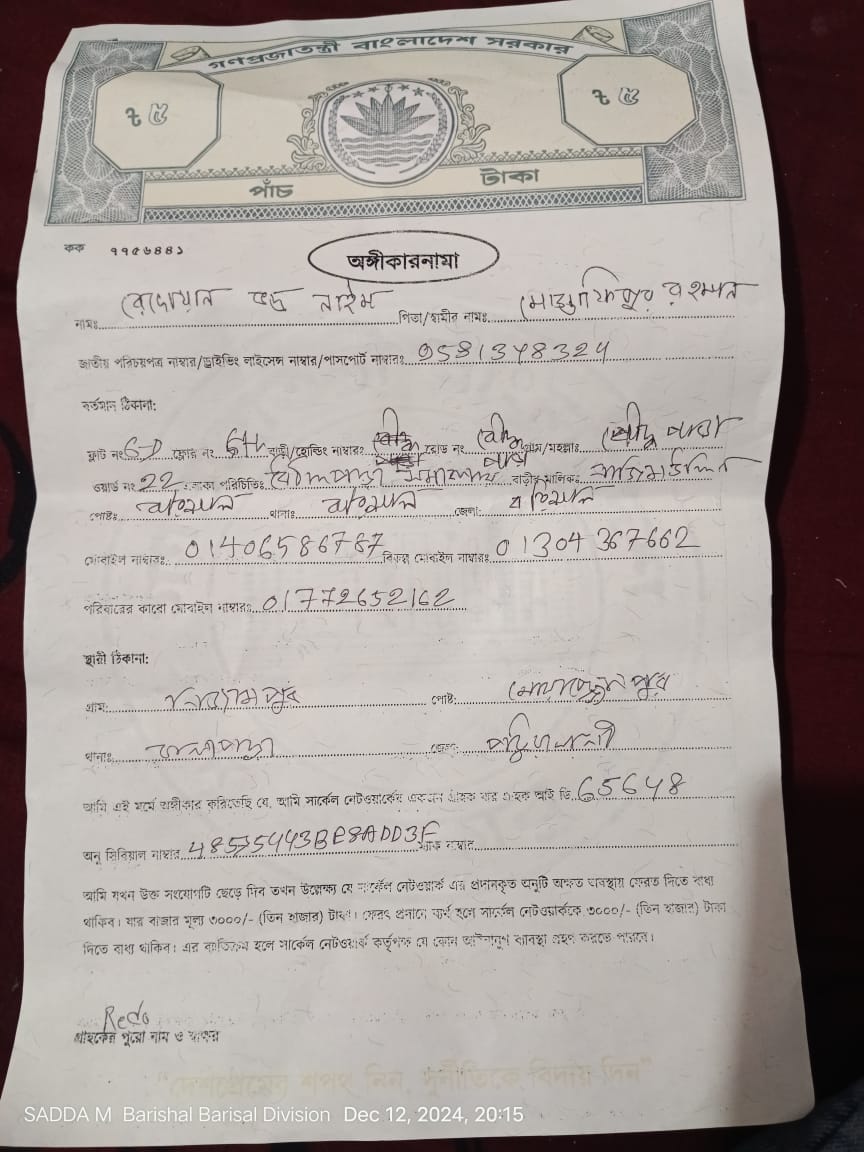 গণপ্রজাতন্ত্রী বাংলাদেশ সরকার
৳ ৫ ৳ ৫
পাঁচ টাকা
কক ৭৭৫৬৪৪১
অঙ্গীকারনামা
নামঃ রেদোয়ান নাইম পিতা/স্বামীর নামঃ রহমান
জাতীয় পরিচয়পত্র নাম্বার/ড্রাইভিং লাইসেন্স নাম্বার/পাসপোর্ট নাম্বারঃ 9581348324
বর্তমান ঠিকানা:
ফ্লাট নংঃ 6-D ফ্লোর নং 6th বাড়ী/হোল্ডিং নাম্বারঃ রোড নং গ্রাম/মহল্লাঃ
ওয়ার্ড নং 22 বাড়ীর মালিকঃ
পোষ্টঃ বরিশাল থানাঃ বরিশাল জেলা: বরিশাল
মোবাইল নাম্বারঃ 01406586787 বিকল্প মোবাইল নাম্বারঃ 01304 367662
পরিবারের কারো মোবাইল নাম্বারঃ 01772652162
স্থায়ী ঠিকানা:
গ্রাম: পোষ্ট:
থানাঃ কলাপাড়া জেলা: পটুয়াখালী
আমি এই মর্মে অঙ্গীকার করিতেছি যে, আমি সার্কেল নেটওয়ার্কের একজন গ্রাহক যার গ্রাহক আই ডি 65648
অনু সিরিয়াল নাম্বার 48575443BE8ADD3F ম্যাক নাম্বার
আমি যখন উক্ত সংযোগটি ছেড়ে দিব তখন উল্লেখ্য যে সার্কেল নেটওয়ার্ক এর প্রদানকৃত অনুটি অক্ষত অবস্থায় ফেরত দিতে বাধ্য
থাকিব। যার বাজার মূল্য ৩০০০/- (তিন হাজার) টাকা। ফেরৎ প্রদানে ব্যর্থ হলে সার্কেল নেটওয়ার্ককে ৩০০০/- (তিন হাজার) টাকা
দিতে বাধ্য থাকিব। এর ব্যতিক্রম হলে সার্কেল নেটওয়ার্ক কর্তৃপক্ষ যে কোন আইনানুগ ব্যবস্থা গ্রহণ করতে পারবে।
Redo
গ্রাহকের পুরো নাম ও স্বাক্ষর
"দেশপ্রেমের শপথ নিন, দুর্নীতিকে বিদায় দিন"
SADDA M Barishal Barisal Division Dec 12, 2024, 20:15